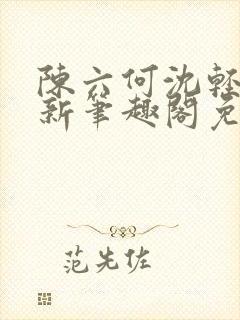 陳六何沈輕
新筆趣閣免
范先佐